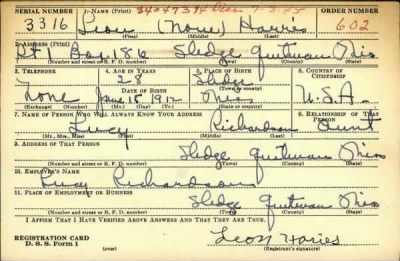 SERIAL NUMBER 1. NAME (Print) ORDER NUMBER
3316 Leon (None) Harris 602
(First) (Middle) (Last)
2. ADDRESS (Print)
Rt 1 Box 186 Sledge Quitman Miss
(Number and street or R. F. D. number) (Town) (County) (State)
3. TELEPHONE 4. AGE IN YEARS 5. PLACE OF BIRTH 6. COUNTRY OF CITIZENSHIP
28 Sledge
DATE OF BIRTH (Town or county)
None June 15 1912 Miss U.S.A.
(Exchange) (Number) (Mo.) (Day) (Yr.) (State or country)
7. NAME OF PERSON WHO WILL ALWAYS KNOW YOUR ADDRESS 8. RELATIONSHIP OF THAT PERSON
Lucy Richardson Aunt
(Mr., Mrs., Miss) (First) (Middle) (Last)
9. ADDRESS OF THAT PERSON
Sledge Quitman Miss
(Number and street or R. F. D. number) (Town) (County) (State)
10. EMPLOYER'S NAME
Lucy Richardson
11. PLACE OF EMPLOYMENT OR BUSINESS
Sledge Quitman Miss
(Number and street or R. F. D. number) (Town) (County) (State)
I AFFIRM THAT I HAVE VERIFIED ABOVE ANSWERS AND THAT THEY ARE TRUE.
REGISTRATION CARD
D. S. S. Form 1 (over) Leon Haries
(Registrant's signature)